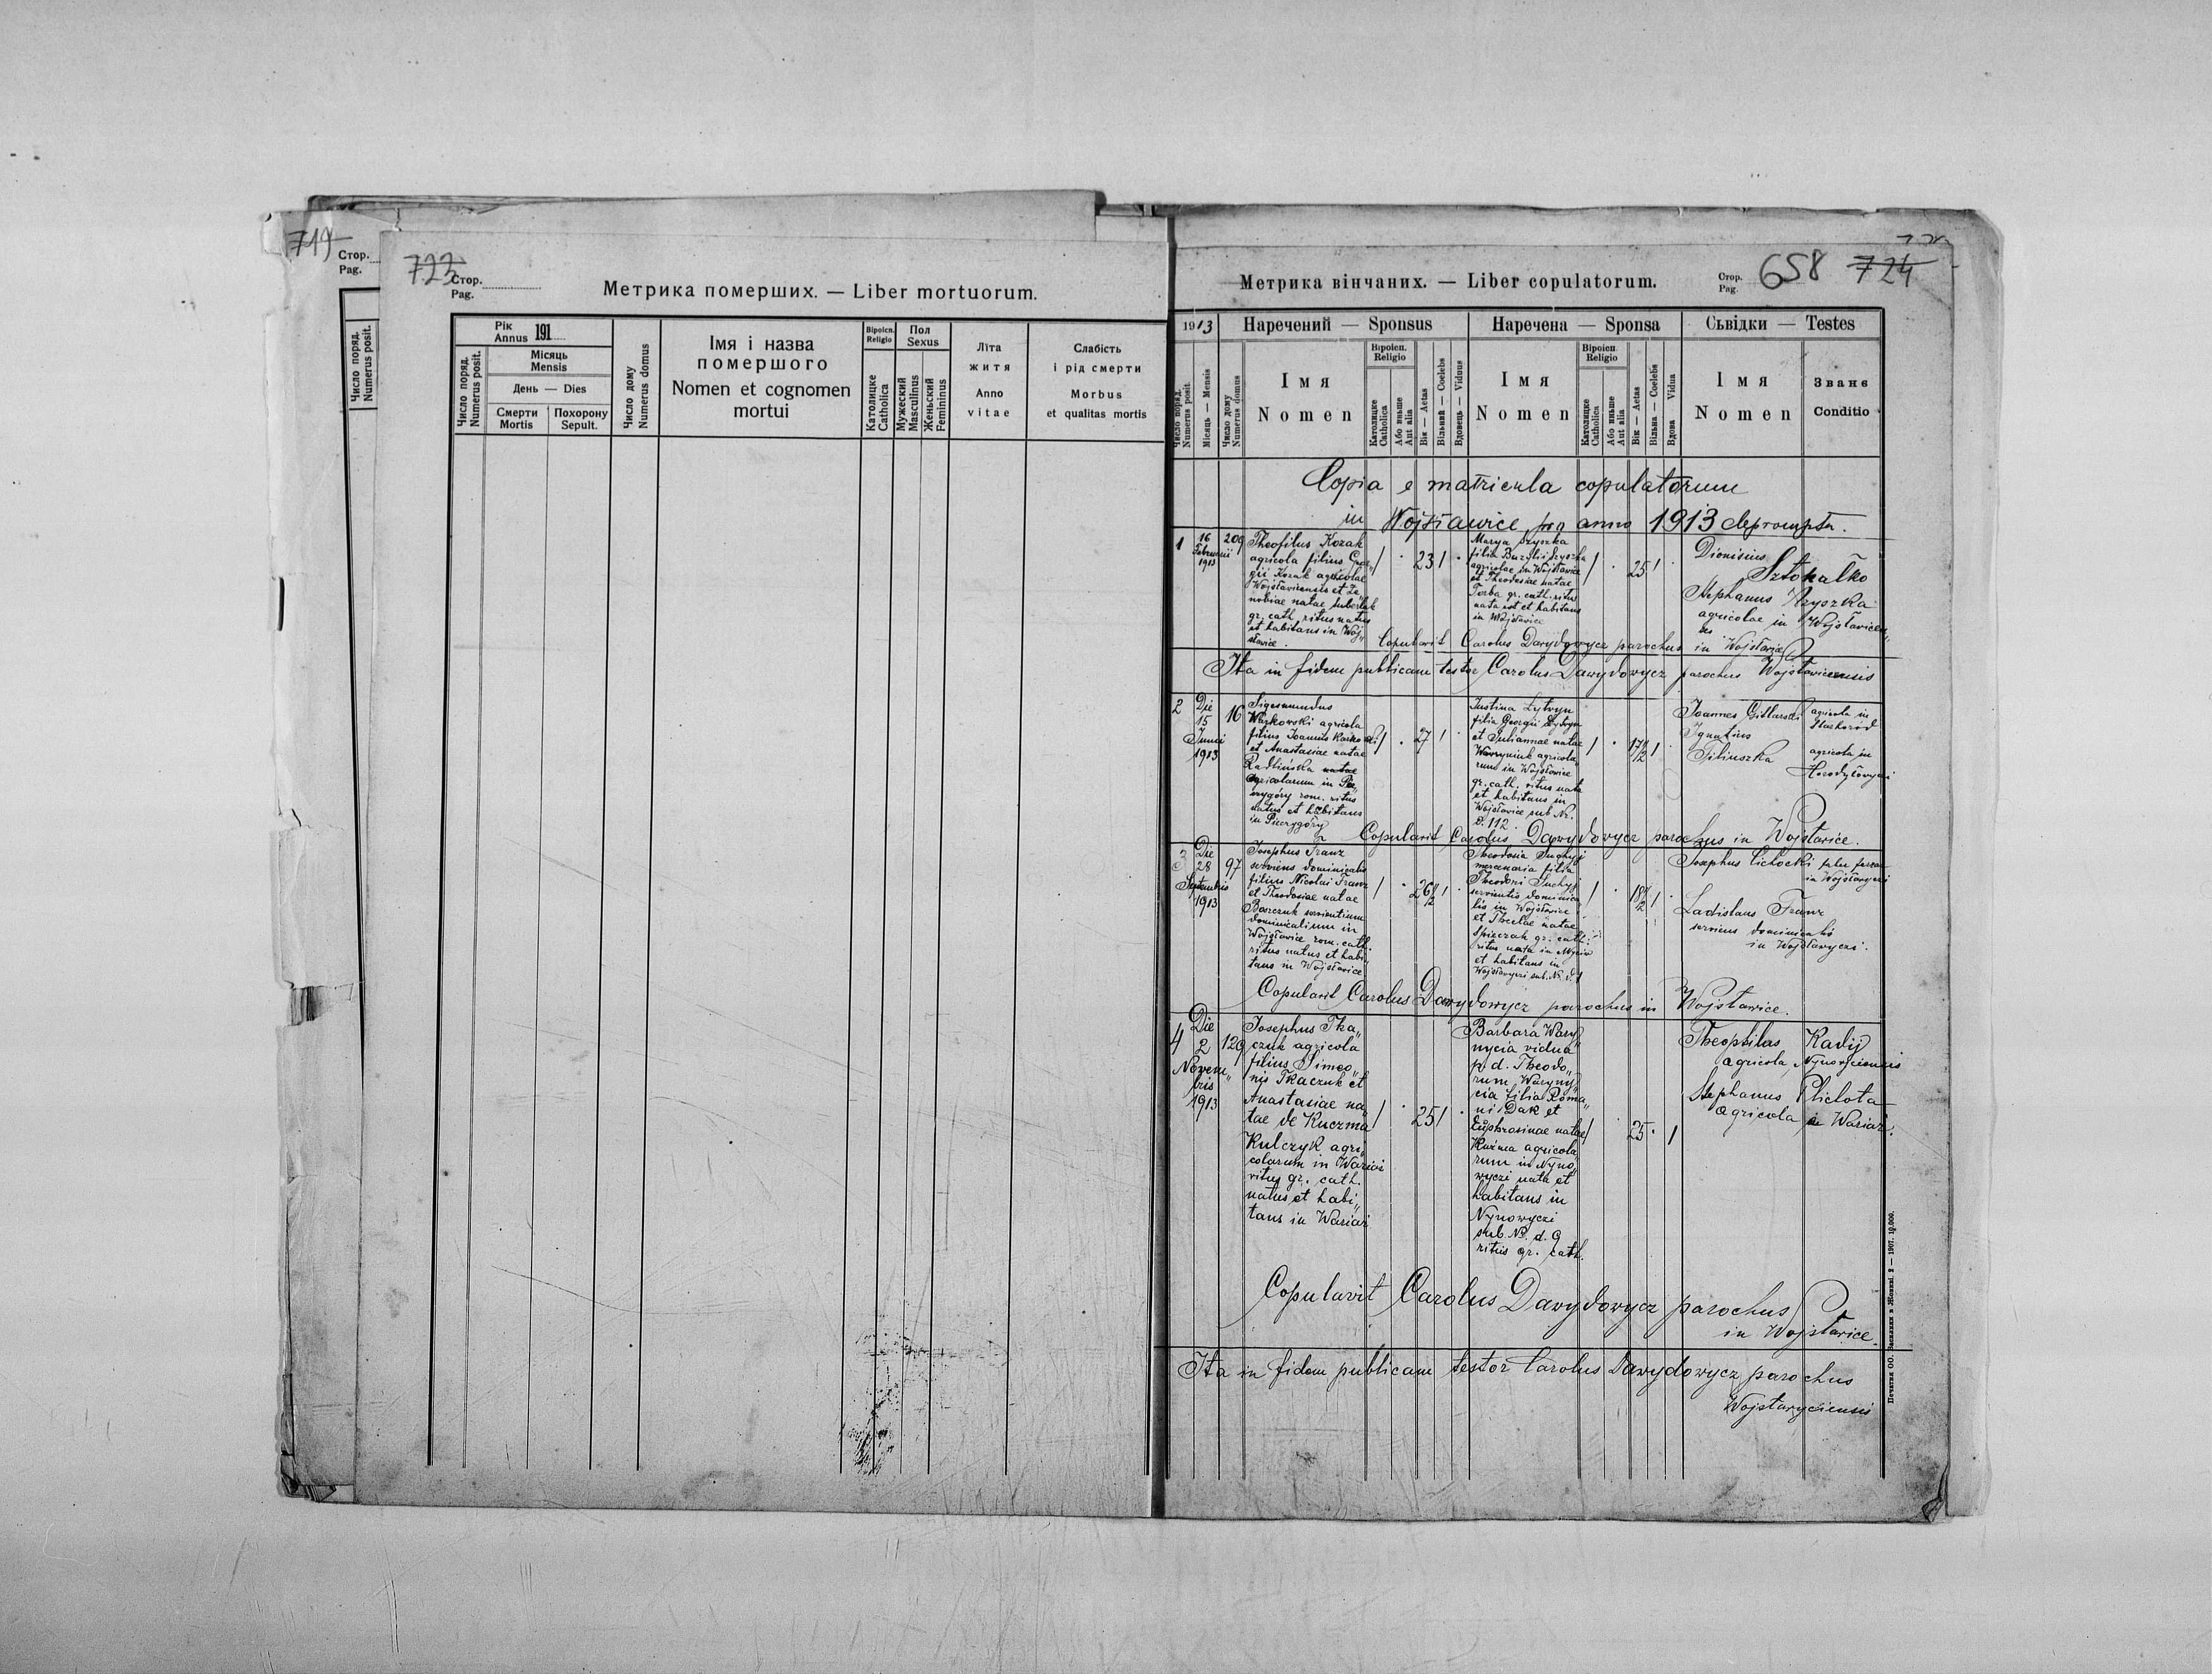 719
Стор.
Pag.
Число поряд.
Numerus posit.
723
Стор.
Pag.
Метрика померших. — Liber mortuorum.
Рік
Annus 191
Місяць
Mensis
День — Dies
Смерти
Mortis
Похорону
Sepult.
Число поряд.
Numerus posit.
Число дому
Numerus domus
Імя і назва
помершого
Nomen et cognomen
mortui
Віроісп.
Religio
Католицке
Catholica
Пол
Sexus
Мужеский
Masculinus
Женьский
Femininus
Літа
житя
Anno
vitae
Слабість
і рід смерти
Morbus
et qualitas mortis
Метрика вінчаних. — Liber copulatorum.
Стор.
Pag.
658 724
1913
Наречений — Sponsus
Наречена — Sponsa
Сьвідки — Testes
Число поряд.
Numerus posit.
Місяць — Mensis
Число дому
Numerus domus
Імя
Nomen
Віроісп.
Religio
Католицке
Catholica
Або иньше
Aut alia
Вік — Aetas
Вільний — Coelebs
Вдовець — Viduus
Імя
Nomen
Віроісп.
Religio
Католицке
Catholica
Або иньше
Aut alia
Вік — Aetas
Вільна — Coelebs
Вдова Vidua
Імя
Nomen
Званє
Conditio
Copia e matricula copulatorum
in Wojsławice pro anno 1913 deprompta.
1
16
Februarii
1913
209
Theofilus Kozak
agricola filius Geor„
gii Kozak agricolae
Wojsławicensis et Ze„
nobiae natae
gr. cath. ritus natus
et habitans in Woj„
sławice.
1 · 23 1 ·
Marya Szyszka
filia Bazylii Szyszka
agricolae in Wojsławice
et Theodosiae natae
Torba gr. cath. ritus
nata est et habitans
in Wojsławice
1 · 25 1
Dionisius
Sztokałko
Stephanus Szyszka
agricolae in Wojsławicen„
ses
Copulavit Carolus Dawydowycz parochus in Wojsławice
Ita in fidem publicam testor Carolus Dawydowycz parochus Wojsławicensis
2
Die
15
Junii
1913
16
Sigesmundus
Warkowski agricola
filius Joannis
et Anastasiae natae
Radlińska natae
agricolarum in Pie„
czygóry rom. ritus
natus et habitans
in Pieczygóry
1 · 27 1
Justina Lytwyn
filia Georgii Lytwyn
et Julianae natae
Wawryniuk agricola„
rum in Wojsławice
gr. cath. ritus nata
et habitans in
Wojsławice sub Nr.
d. 112
1 · 17/2 1
Joannes
agricola in
Ignatius
Piliuszka
agricola in
Copulavit Carolus Dawydowycz parochus in Wojsławice.
3
Die
28
Septembris
1913
97
Josephus Franz
serviens dominicalis
filius Nicolai Franz
et Theodosiae natae
Barczuk servientium
dominicalium in
Wojsławice rom. cath.
ritus natus et habi„
tans in Wojsławice
1 · 26/2 1 ·
Theodosia Suchyj
mercenaria filia
Theodori Suchyj
servientis dominica„
lis in Wojsławice
et Theclae natae
Spieczak gr. cath.
ritus nata in
et habitans in
Wojsławyczi sub. Nr. d. 1
1 · 18/2 1
Josephus Cichocki faber
in Wojsławyczi
Ladislaus Franz
serviens dominicalis
in Wojsławyczi.
Copulavit Carolus Dawydowycz parochus in Wojsławice.
4
Die
2
Novem„
bris
1913
129
Josephus Tka„
czuk agricola
filius Simeo„
nis Tkaczuk et
Anastasiae na„
tae de Kuczma
Kulczyk agri„
colarum in Wariaż
ritus gr. cath.
natus et habi„
tans in Wariaż
1 · 25 1 ·
Barbara Wary„
nycia vidua
p. d. Theodo„
rum Waryny„
cia filia Roma„
ni Dak et
Euphrosinae natae
Kuźma agricola„
rum in Nyno„
wyczi nata et
habitans in
Nynowyczi
sub Nr. d. 9
ritus gr. cath.
1 · 25 · 1
Theophilus Kadij
agricola Nynowyciensis
Stephanus Plichota
agricola in Wariaż.
Copulavit Carolus Dawydowycz parochus
in Wojsławice
Ita in fidem publicam testor Carolus Dawydowycz parochus
Wojsławyciensis
Печатня ОО. Василиян в Жовкві. 2 — 1907. 10.000.